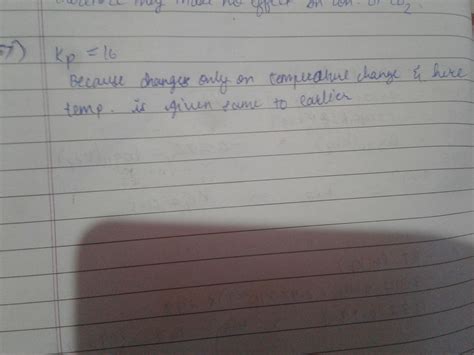 therefore they make no effect on con. of CO2
57) Kp = 16
Because changes only on temperature change & here
temp. is given same to earlier